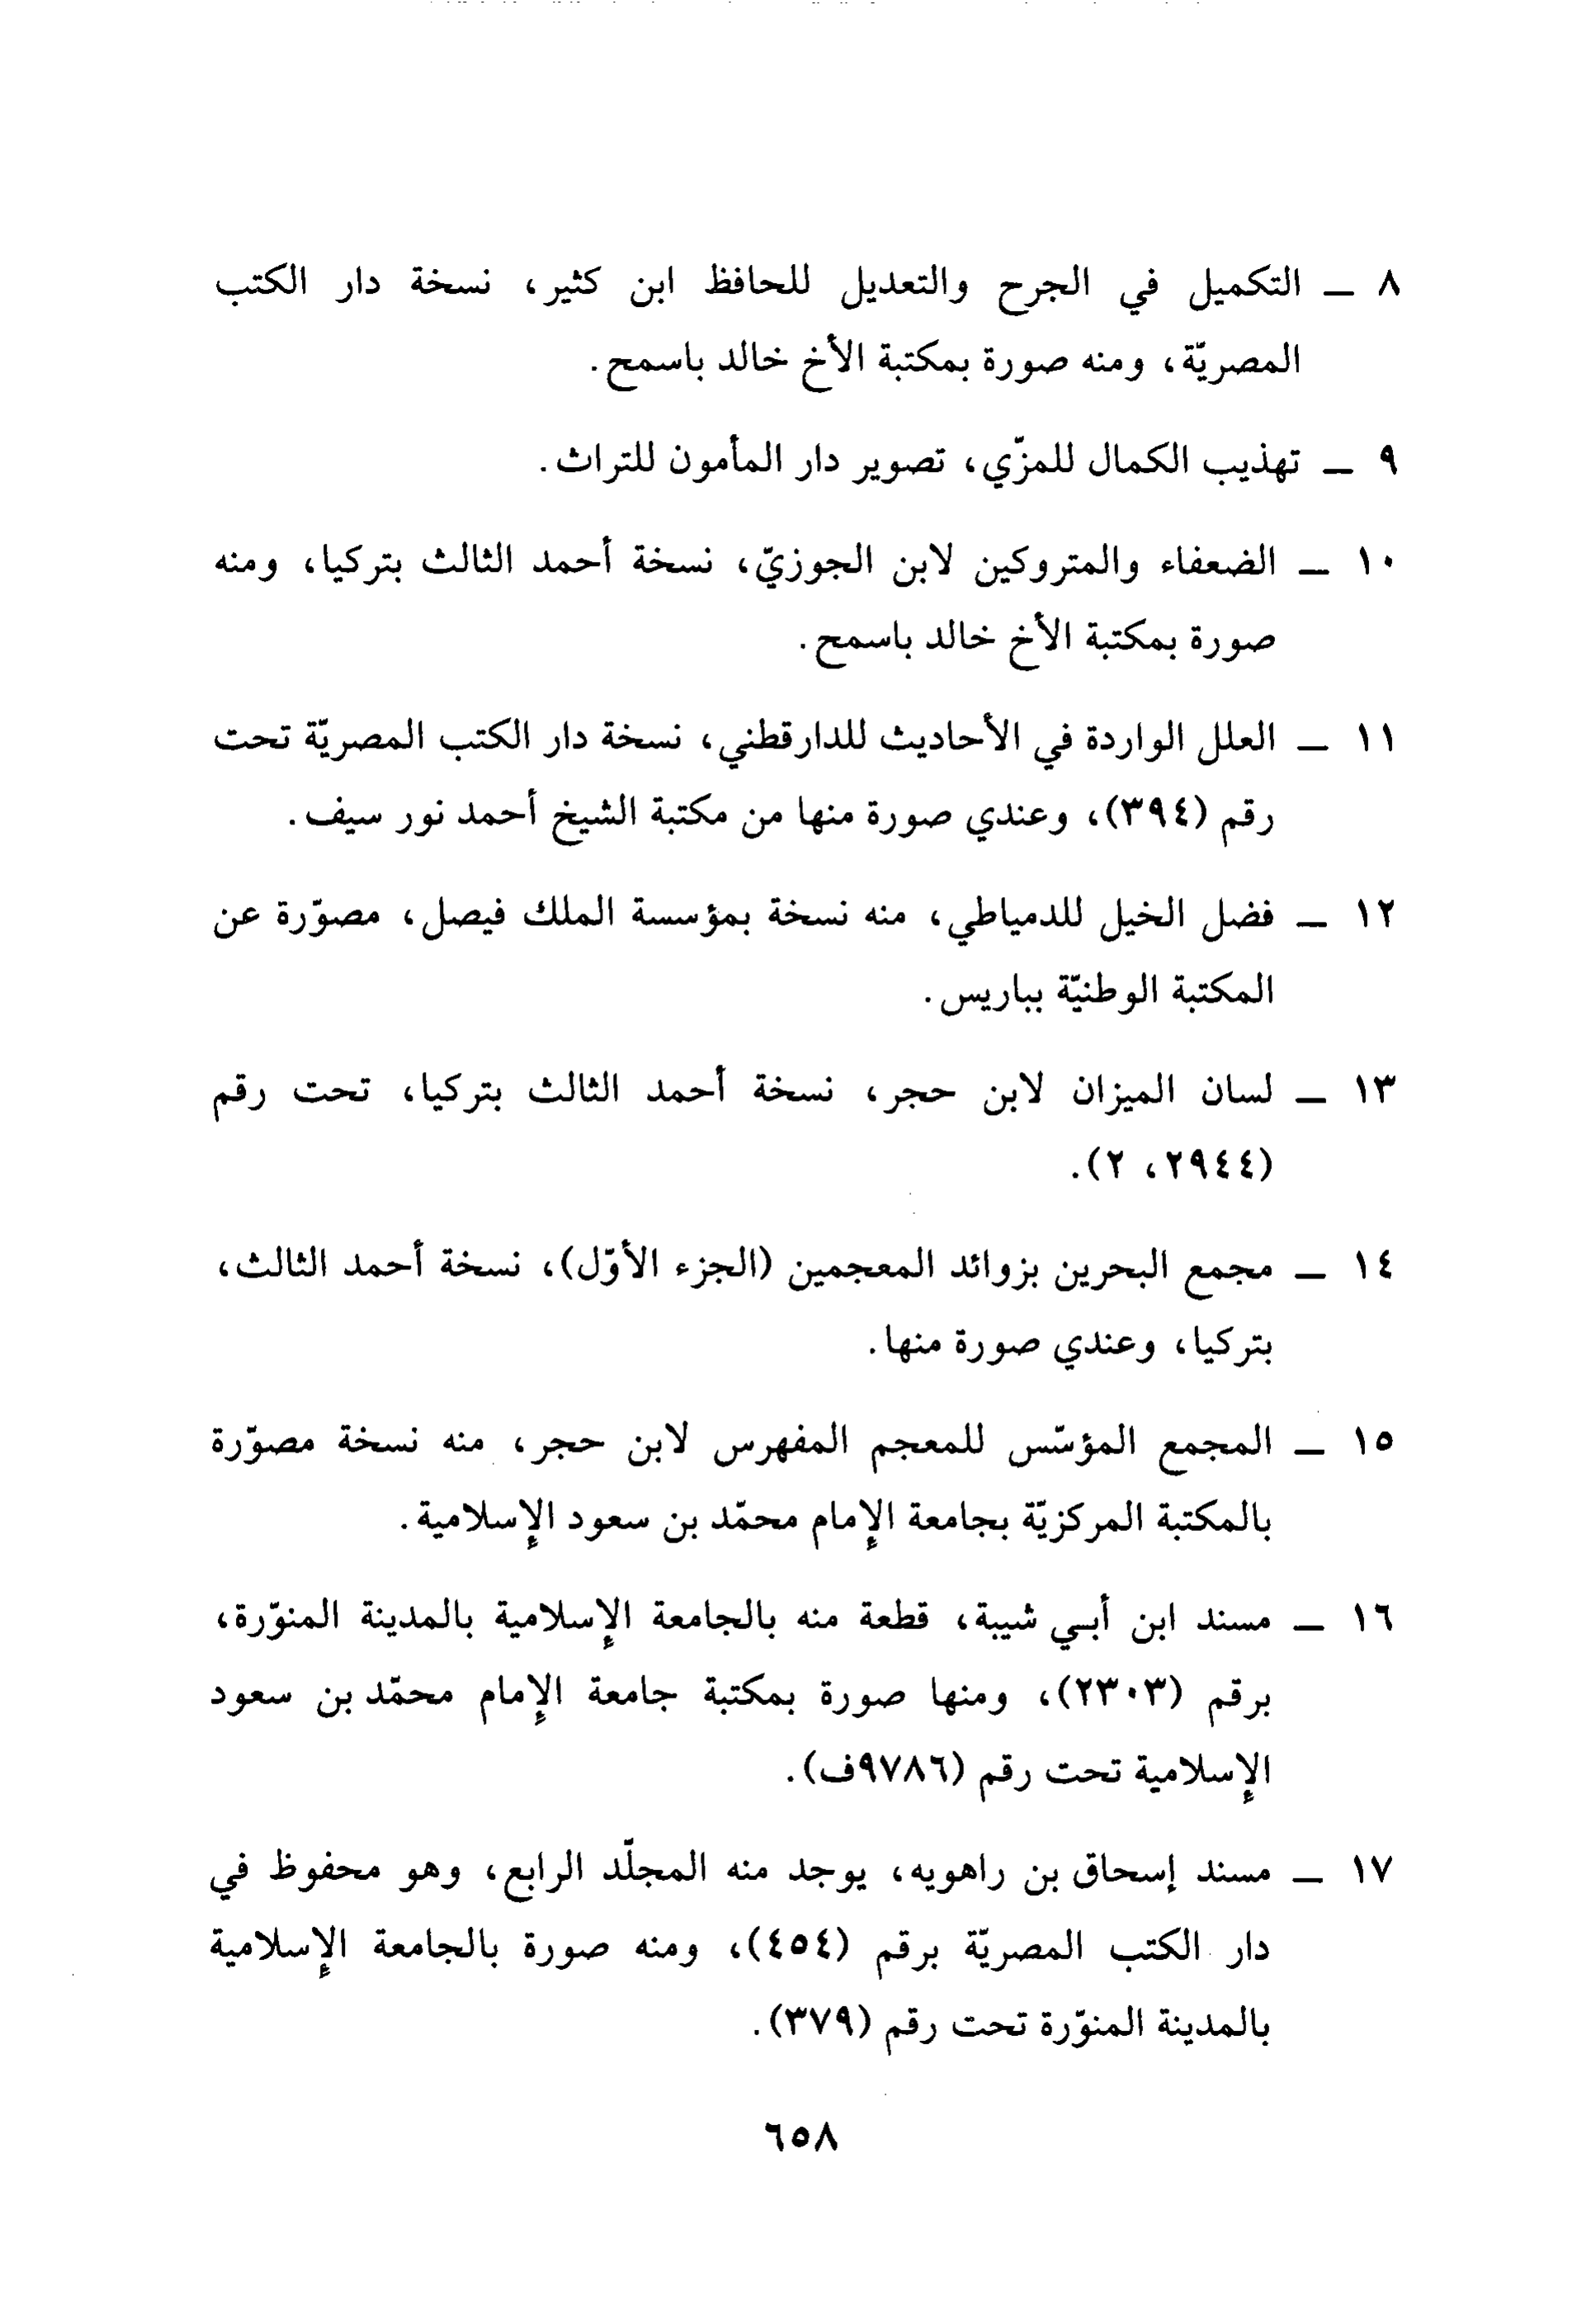 ٨ — التكميل في الجرح والتعديل للحافظ ابن كثير، نسخة دار الكتب
المصريّة، ومنه صورة بمكتبة الأخ خالد باسمح.
٩ — تهذيب الكمال للمزّي، تصوير دار المأمون للتراث.
١٠ — الضعفاء والمتروكين لابن الجوزيّ، نسخة أحمد الثالث بتركيا، ومنه
صورة بمكتبة الأخ خالد باسمح.
١١ — العلل الواردة في الأحاديث للدارقطني، نسخة دار الكتب المصريّة تحت
رقم (٣٩٤)، وعندي صورة منها من مكتبة الشيخ أحمد نور سيف.
١٢ — فضل الخيل للدمياطي، منه نسخة بمؤسسة الملك فيصل، مصوّرة عن
المكتبة الوطنيّة بباريس.
١٣ — لسان الميزان لابن حجر، نسخة أحمد الثالث بتركيا، تحت رقم
(٢٩٤٤، ٢).
١٤ — مجمع البحرين بزوائد المعجمين (الجزء الأوّل)، نسخة أحمد الثالث،
بتركيا، وعندي صورة منها.
١٥ — المجمع المؤسّس للمعجم المفهرس لابن حجر، منه نسخة مصوّرة
بالمكتبة المركزيّة بجامعة الإمام محمّد بن سعود الإسلامية.
١٦ — مسند ابن أبي شيبة، قطعة منه بالجامعة الإسلامية بالمدينة المنوّرة،
برقم (٢٣٠٣)، ومنها صورة بمكتبة جامعة الإمام محمّد بن سعود
الإسلامية تحت رقم (٩٧٨٦ف).
١٧ — مسند إسحاق بن راهويه، يوجد منه المجلّد الرابع، وهو محفوظ في
دار الكتب المصريّة برقم (٤٥٤)، ومنه صورة بالجامعة الإسلامية
بالمدينة المنوّرة تحت رقم (٣٧٩).
٦٥٨